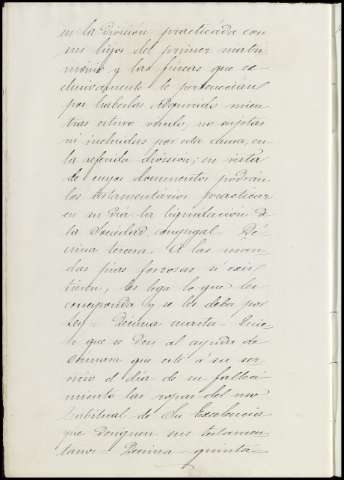 en la Division practicada con
sus hijos del primer matri
monio y las fincas que es
clusivamente le pertenecian
por haberlas adquirido mien
tras estuvo viudo, no sujetas
ni incluidas por otra causa, en
la referida division; en virtud
de cuyos documentos podrán
los testamentarios practicar
en su dia la liquidacion de
la Sociedad conyugal. Dé
cima tercera. A las man
das pias forzosas si exis
tiesen, les lega lo que les
corresponda y se les deba por
Ley. Décima cuarta.
lo que se Den al ayuda de
Camara que esté a su ser
vicio el dia de su falleci
miento las ropas del uso
habitual de Su Excelencia
que dispongan sus testamen
tarios. Decima quinta